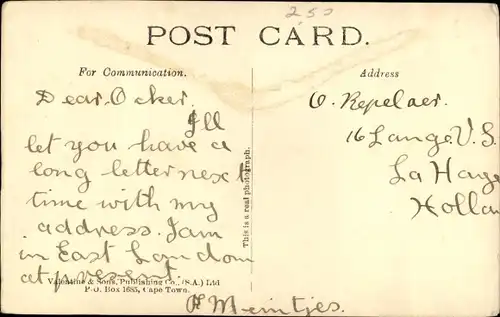 250
POST CARD.
For Communication.
Address
Dear Ocker.
I'll
let you have a
long letter next
time with my
address. I am
in East London
at present.
P Meintjes.
This is a real photograph.
O. Repelaer.
16 Lange V.S.
La Haye
Hollan
Valentine & Sons, Publishing Co., (S.A.) Ltd
P.O. Box 1685, Cape Town.